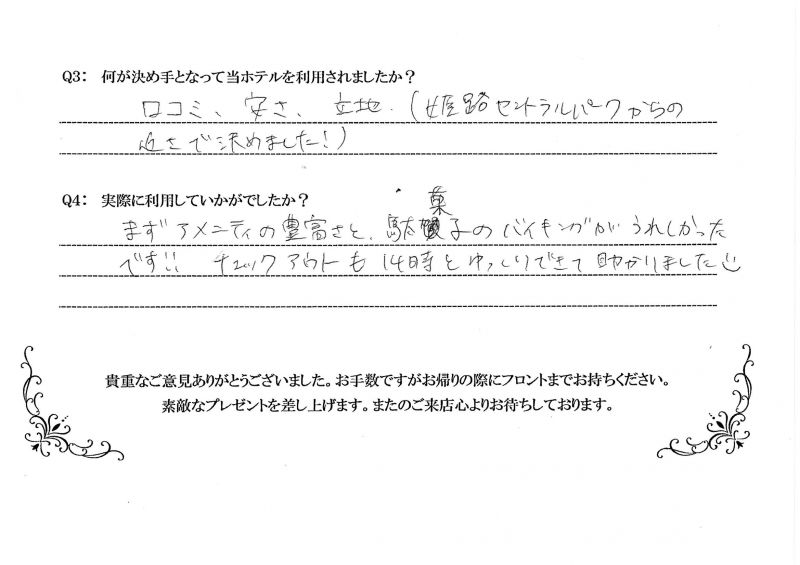 Q3： 何が決め手となって当ホテルを利用されましたか？
口コミ、安さ、立地．(姫路セントラルパークからの
近さで決めました！)
Q4： 実際に利用していかがでしたか？
まずアメニティの豊富さと、駄菓子のバイキングがうれしかった
です!! チェックアウトも14時とゆっくりできて助かりました
貴重なご意見ありがとうございました。お手数ですがお帰りの際にフロントまでお持ちください。
素敵なプレゼントを差し上げます。またのご来店心よりお待ちしております。